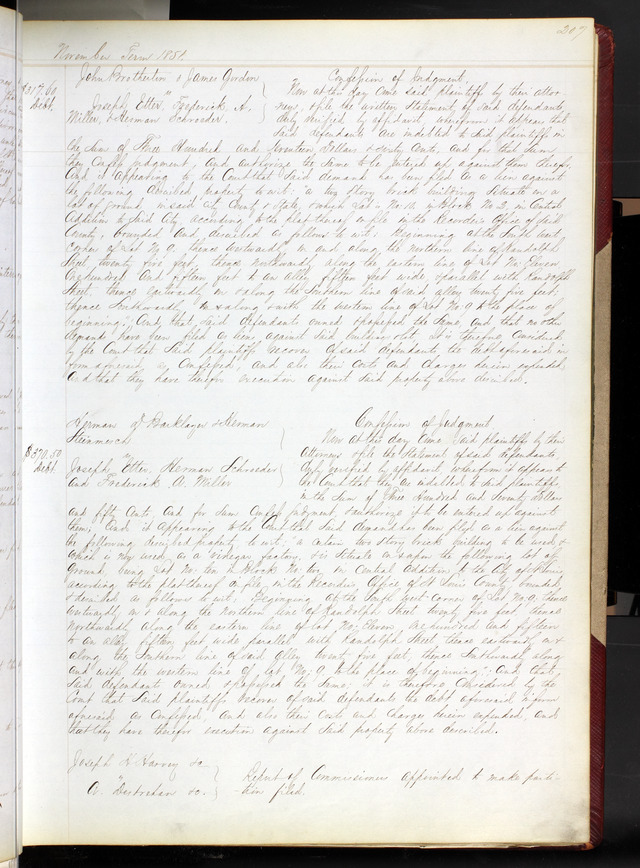 207
November Term 1851.
John Brotherton & James Gordon
Confession of Judgment
$317.60
Debt
vs
Joseph Etter, Frederick A.
Miller, & Herman Schroeder.
Now at this day come said plaintiffs by their attor-
neys, & file the written statement of said defendants,
duly verified by affidavit, wherefrom it appears that
said defendants are indebted to said plaintiffs in
the sum of Three Hundred and Seventeen Dollars & Sixty Cents, and for that sum
they confess judgment, and authorize the same to be entered up against them therefor,
And it appearing to the Court that said demand has been filed as a lien against
the following described property to wit: "a two story brick building situate on a
lot of ground, in said City County & State, which lot is No. 10 in Block No 2, in Central
Addition to said City according to the plat thereof on file in the Recorder's Office of said
County, bounded and described as follows to wit: Beginning at the South west
corner of Lot No 9, thence westwardly on and along the northern line of Randolph
Street twenty five feet, thence northwardly along the eastern line of Lot No. Eleven
One hundred and fifteen feet to an alley fifteen feet wide, parallel with Randolph
Street, thence eastwardly on & along the Southern line of said alley twenty five feet,
thence Southwardly on & along with the western line of Lot No 9 to the place of
beginning"; And that said defendants owned & possessed the same, and that no other
demands have been filed as liens against said building & lot, It is therefore considered
by the Court that said plaintiffs recover of said defendants the debt aforesaid in
form aforesaid as confessed, and also their costs and charges herein expended,
and that they have therefor execution against said property above described.
Herman & Herman
Confession of Judgment
$370.50
debt
vs
Joseph Etter, Herman Schroeder
and Frederick A. Miller
Now at this day come said plaintiffs by their
Attorneys & file the statement of said defendants
duly verified by affidavit wherefrom it appears to
the Court that they are indebted to said plaintiffs
in the sum of Three Hundred and Seventy Dollars
and fifty cents, and for same confess judgment, & authorize it to be entered up against
them; And it appearing to the Court that said demand has been filed as a lien against
the following described property to wit: "a certain two story brick building to be used, &
which is now used, as a vinegar factory, & is situate on & upon the following lot of
ground, being Lot No. ten in Block No. two, in Central Addition to the City of St Louis
according to the plat thereof on file, in the Recorder's Office of St Louis County bounded
& described as follows to wit: Beginning at the South west corner of Lot No. 9, thence
westwardly on & along the Northern line of Randolph Street twenty five feet, thence
Northwardly along the eastern line of Lot No. Eleven one hundred and fifteen
to an alley fifteen feet wide parallel with Randolph Street thence eastwardly on &
along the Southern line of said Alley twenty five feet, thence Southwardly along
and with the western line of Lot No. 9 to the place of beginning"; And that
said defendants owned & possessed the same; it is therefore considered by the
Court that said plaintiffs recover of said defendants the debt aforesaid in form
aforesaid as confessed, and also their costs and charges herein expended, and
that they have therefor execution against said property above described.
Joseph H Harvey &c
vs
Report of Commissioners appointed to make parti-
-tion filed.